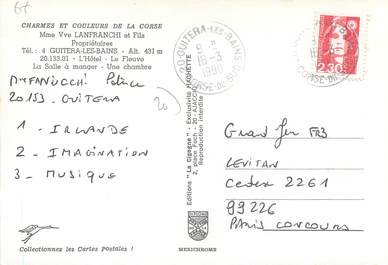 CHARMES ET COULEURS DE LA CORSE
Mme Vve LANFRANCHI et Fils
Propriétaires
Tél. : 4 GUITERA-LES-BAINS - Alt. 431 m
20.133.01 - L'Hôtel - Le Fleuve
La Salle à manger - Une chambre
20153 GUITERA
20
1 - IRLANDE
2 - IMAGINATION
3 - MUSIQUE
Collectionnez les Cartes Postales !
Editions "La Cigogne" - Exclusivité HACHETTE
2, place Foch - 20 - AJACCIO
Reproduction interdite
MEXICHROME
20 GUITERA-LES-BAINS
16-3
1990
CORSE-DU-SUD
2,30
Grand Jeu FR3
LEVITAN
Cedex 2261
99226
PARIS CONCOURS